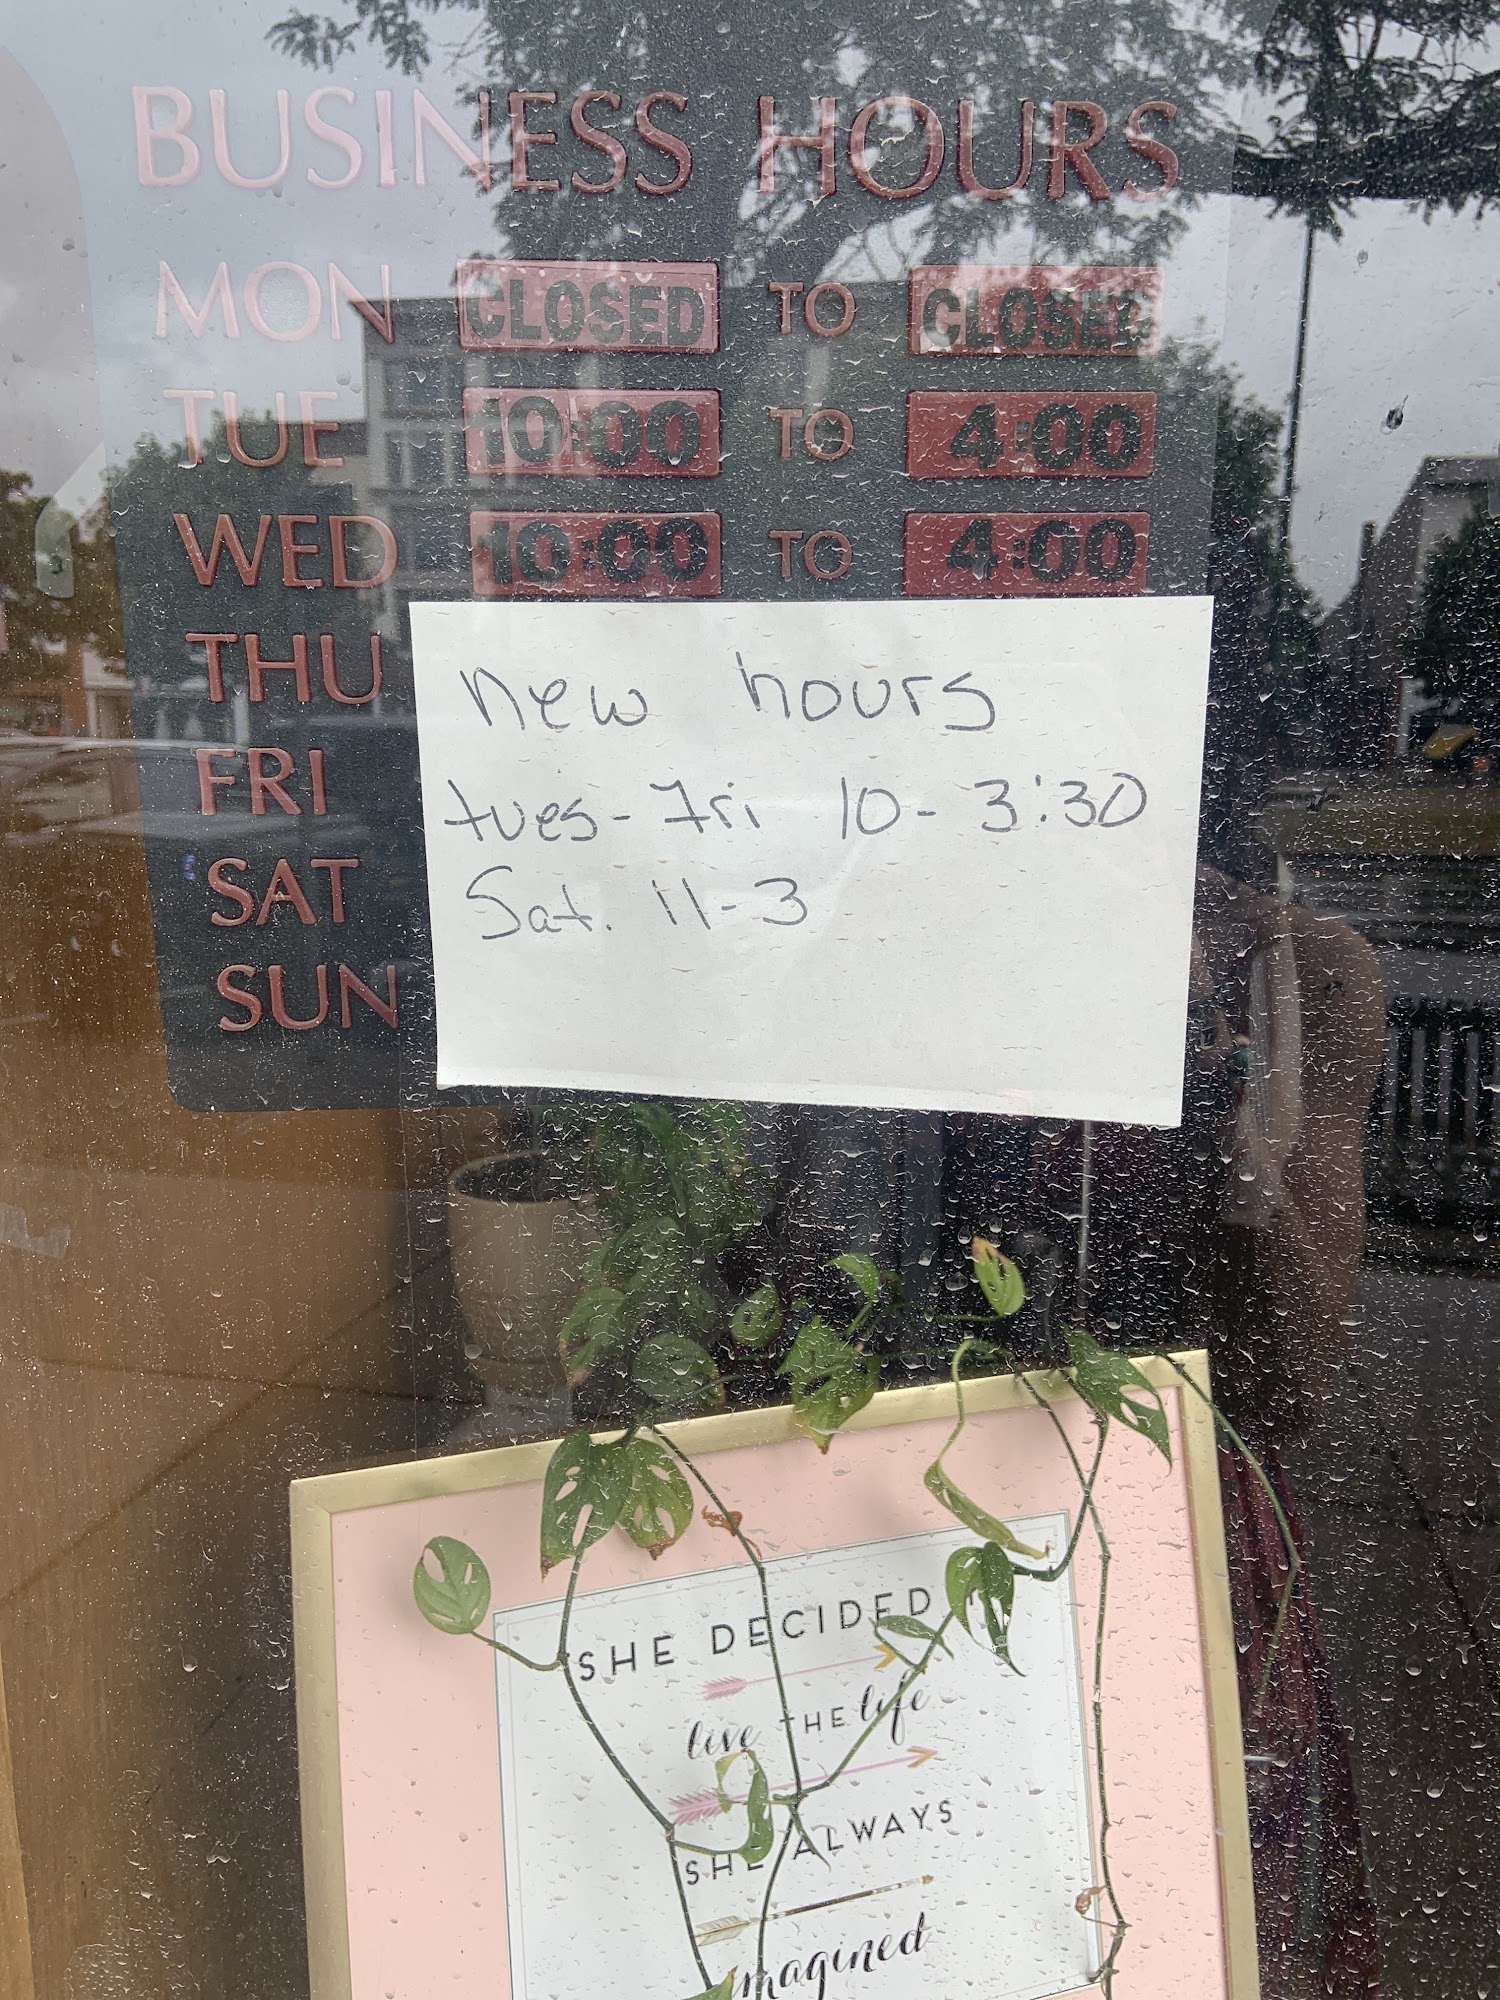 BUSINESS HOURS
MON CLOSED TO CLOSED
TUE 10:00 TO 4:00
WED 10:00 TO 4:00
THU
FRI
SAT
SUN
new hours
tues - Fri 10 - 3:30
Sat. 11 - 3
SHE DECIDED
live THE life
SHE ALWAYS
imagined